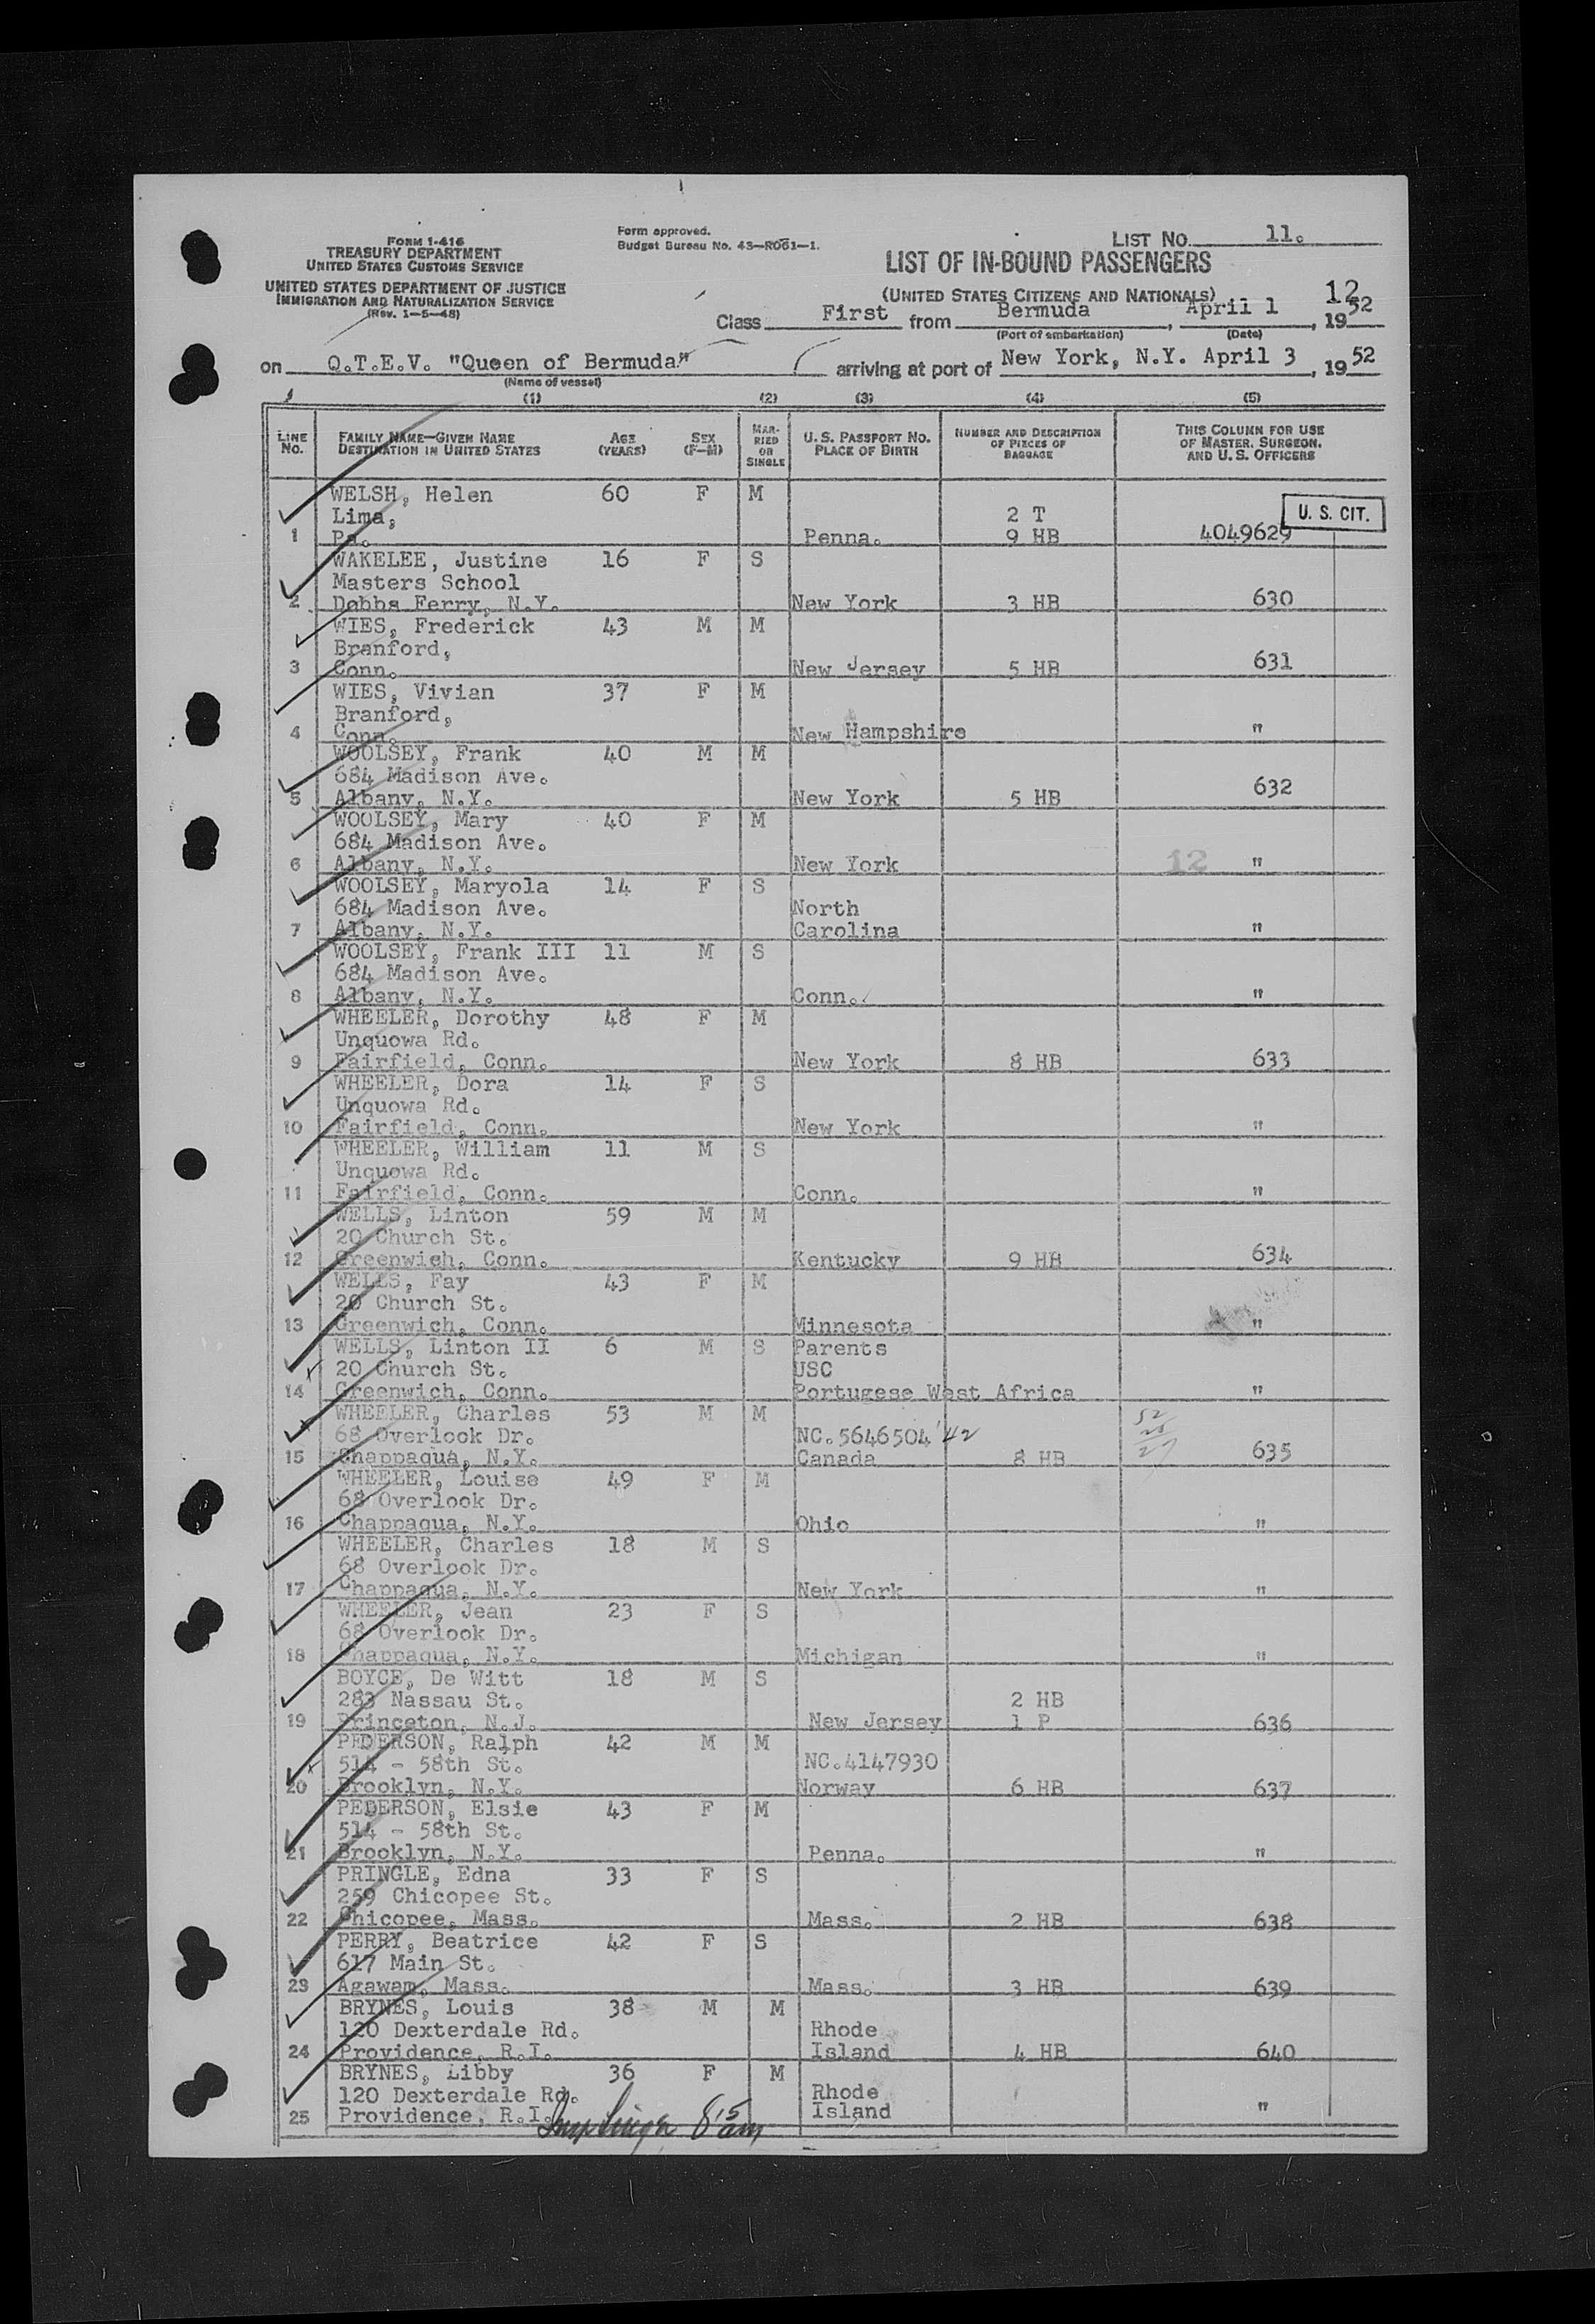 FORM I-416
TREASURY DEPARTMENT
UNITED STATES CUSTOMS SERVICE
UNITED STATES DEPARTMENT OF JUSTICE
IMMIGRATION AND NATURALIZATION SERVICE
(Rev. 1-5-48)
Form approved.
Budget Bureau No. 43-R061-1.
LIST NO. 11.
LIST OF IN-BOUND PASSENGERS
(UNITED STATES CITIZENS AND NATIONALS)
12
Class First from Bermuda, April 1, 1952
(Port of embarkation) (Date)
on Q.T.E.V. "Queen of Bermuda" arriving at port of New York, N.Y. April 3, 1952
(Name of vessel)
(1) (2) (3) (4) (5)
LINE NO. FAMILY NAME—GIVEN NAME DESTINATION IN UNITED STATES AGE (YEARS) SEX (F—M) MARRIED OR SINGLE U. S. PASSPORT NO. PLACE OF BIRTH NUMBER AND DESCRIPTION OF PIECES OF BAGGAGE THIS COLUMN FOR USE OF MASTER, SURGEON, AND U. S. OFFICERS
WELSH, Helen 60 F M
Lima, 2 T U. S. CIT.
1 Pa. Penna. 9 HB 4049629
WAKELEE, Justine 16 F S
Masters School
2 Dobbs Ferry, N.Y. New York 3 HB 630
WIES, Frederick 43 M M
Branford,
3 Conn. New Jersey 5 HB 631
WIES, Vivian 37 F M
Branford,
4 Conn. New Hampshire "
WOOLSEY, Frank 40 M M
684 Madison Ave.
5 Albany, N.Y. New York 5 HB 632
WOOLSEY, Mary 40 F M
684 Madison Ave.
6 Albany, N.Y. New York 12 "
WOOLSEY, Maryola 14 F S
684 Madison Ave. North
7 Albany, N.Y. Carolina "
WOOLSEY, Frank III 11 M S
684 Madison Ave.
8 Albany, N.Y. Conn. "
WHEELER, Dorothy 48 F M
Unquowa Rd.
9 Fairfield, Conn. New York 8 HB 633
WHEELER, Dora 14 F S
Unquowa Rd.
10 Fairfield, Conn. New York "
WHEELER, William 11 M S
Unquowa Rd.
11 Fairfield, Conn. Conn. "
WELLS, Linton 59 M M
20 Church St.
12 Greenwich, Conn. Kentucky 9 HB 634
WELLS, Fay 43 F M
20 Church St.
13 Greenwich, Conn. Minnesota "
WELLS, Linton II 6 M S Parents
20 Church St. USC
14 Greenwich, Conn. Portugese West Africa "
WHEELER, Charles 53 M M
68 Overlook Dr. NC.5646504 '42
15 Chappaqua, N.Y. Canada 8 HB 635
WHEELER, Louise 49 F M
68 Overlook Dr.
16 Chappaqua, N.Y. Ohio "
WHEELER, Charles 18 M S
68 Overlook Dr.
17 Chappaqua, N.Y. New York "
WHEELER, Jean 23 F S
68 Overlook Dr.
18 Chappaqua, N.Y. Michigan "
BOYCE, De Witt 18 M S
283 Nassau St. 2 HB
19 Princeton, N.J. New Jersey 1 P 636
PEDERSON, Ralph 42 M M
514 - 58th St. NC.4147930
20 Brooklyn, N.Y. Norway 6 HB 637
PEDERSON, Elsie 43 F M
514 - 58th St.
21 Brooklyn, N.Y. Penna. "
PRINGLE, Edna 33 F S
259 Chicopee St.
22 Chicopee, Mass. Mass. 2 HB 638
PERRY, Beatrice 42 F S
617 Main St.
23 Agawam, Mass. Mass. 3 HB 639
BRYNES, Louis 38 M M
120 Dexterdale Rd. Rhode
24 Providence, R.I. Island 4 HB 640
BRYNES, Libby 36 F M
120 Dexterdale Rd. Rhode
25 Providence, R.I. Island "
8 15 am